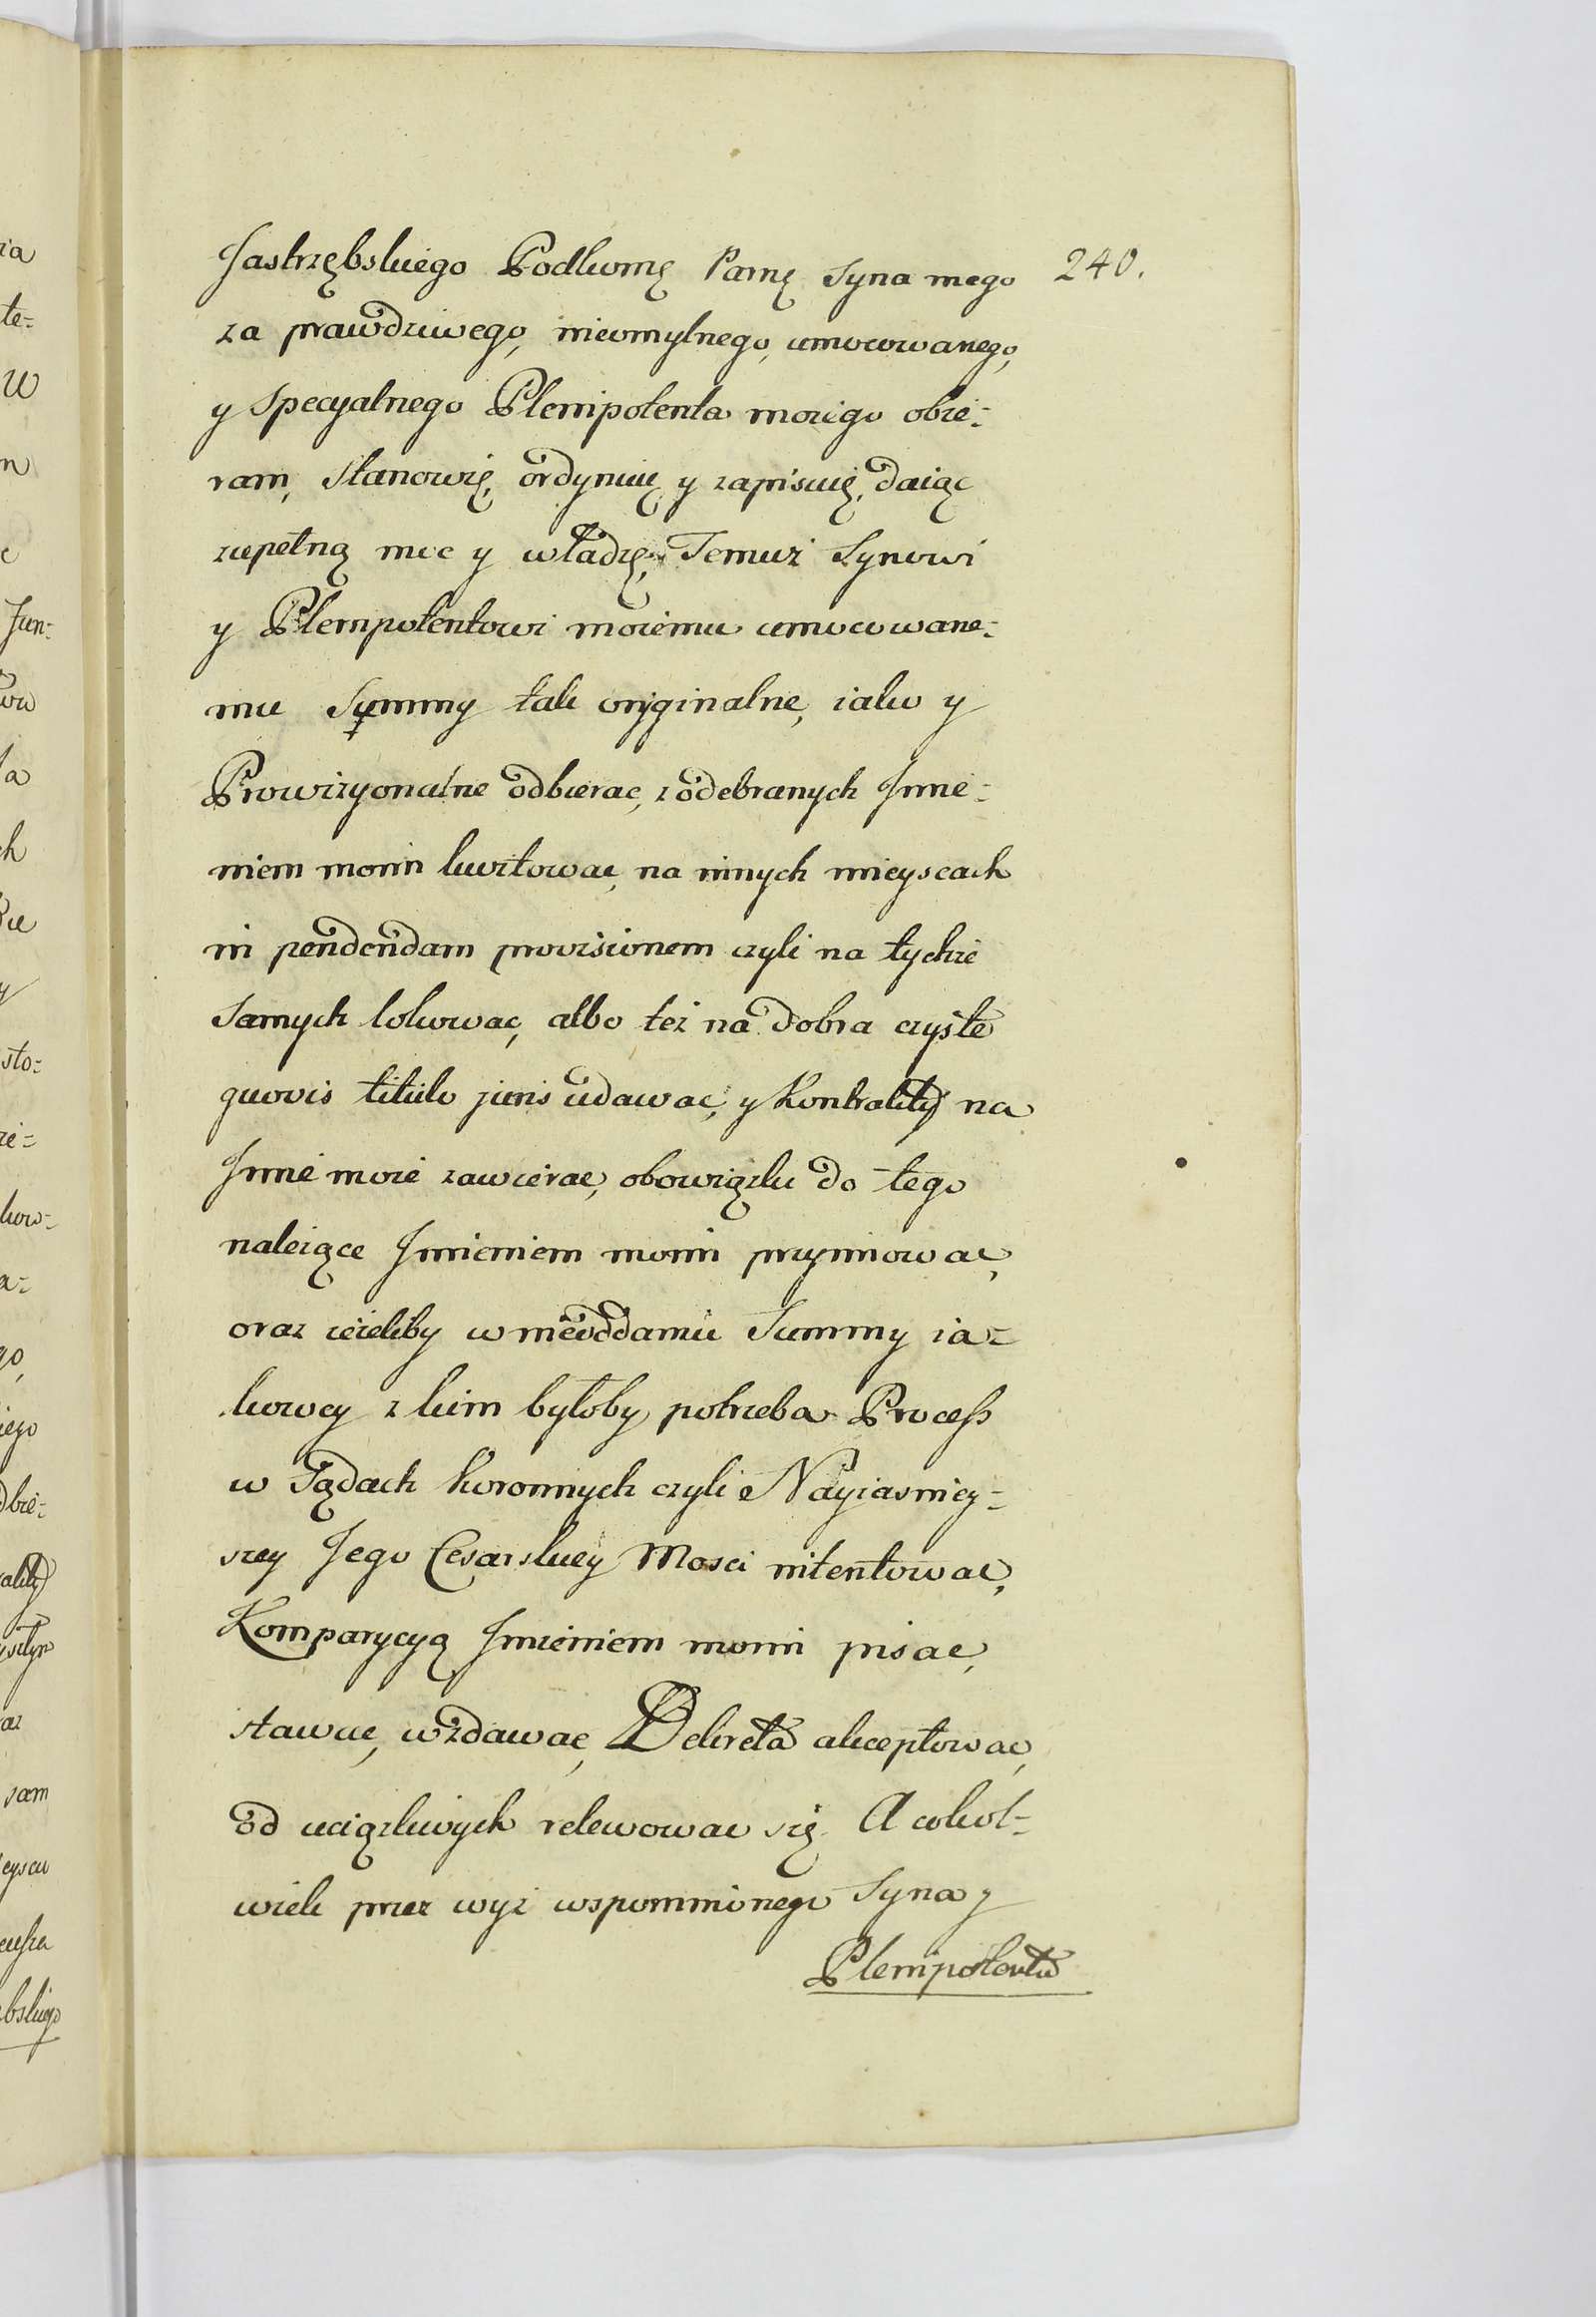 Jastrzębskiego Podkomę Parnę Syna mego 240.
za prawdziwego, nieomylnego, umocowanego,
y specyalnego Plenipotenta moiego obie-
ram, stanowię, ordynuię y zapisuię, daiąc
zupełną moc y władzę, Temuż Synowi
y Plenipotentowi moiemu umocowane-
mu Summy tak oryginalne, iako y
Prowizyonalne odbierac, z odebranych Jmie-
niem moim kwitowac, na innych mieyscach
in pendendam provisionem czyli na tychże
samych lokowac, albo też na dobra czyste
quovis titulo juris udawac, y Kontrakty na
Jmie moie zawierac, obowiązki do tego
należące Jmieniem moim przyimowac,
oraz ieżeliby w nieoddaniu Summy ia-
kowey z kim byłoby potrzeba Process
w Sądach koronnych czyli Nayiasniey-
szey Jego Cesarskiey Mosci intentowac,
Komparycyą Jmieniem moim pisac,
stawac, wzdawac, Dekreta akceptowac,
od uciążliwych relewowac się. A cokol-
wiek przez wyż wspomnionego Syna y
Plenipotenta
ia
te-
W
n
Jun-
la
ch
y
sto-
że-
kow-
a-
go,
iego
dbie-
akty
az
sam
eyscu
ebskiego